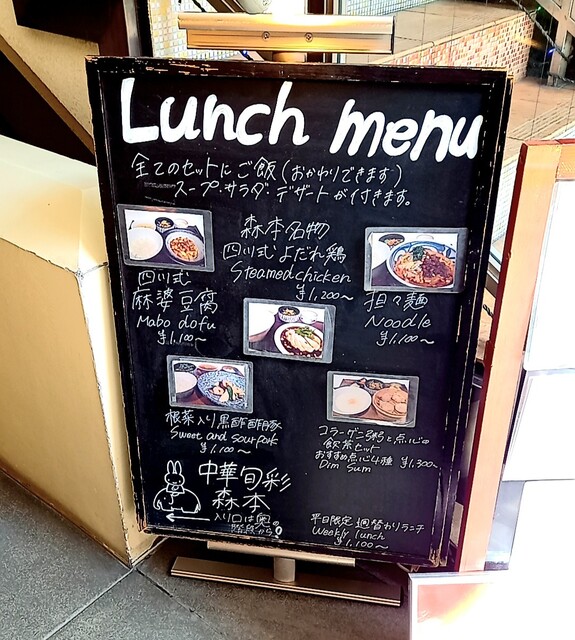 Lunch menu
全てのセットにご飯(おかわりできます)
スープ・サラダ・デザートが付きます。
森本名物
四川式よだれ鶏
Steamed chicken
¥1,200~
四川式
麻婆豆腐
Mabo dofu
¥1,100~
担々麺
Noodle
¥1,100~
根菜入り黒酢酢豚
Sweet and sour pork
¥1,100~
コラーゲン粥と点心の
飲茶セット
おすすめ点心4種 ¥1,300~
Dim Sum
中華旬彩
森本
入り口は奥の
階段から
平日限定 週替わりランチ
Weekly lunch
¥1,100~